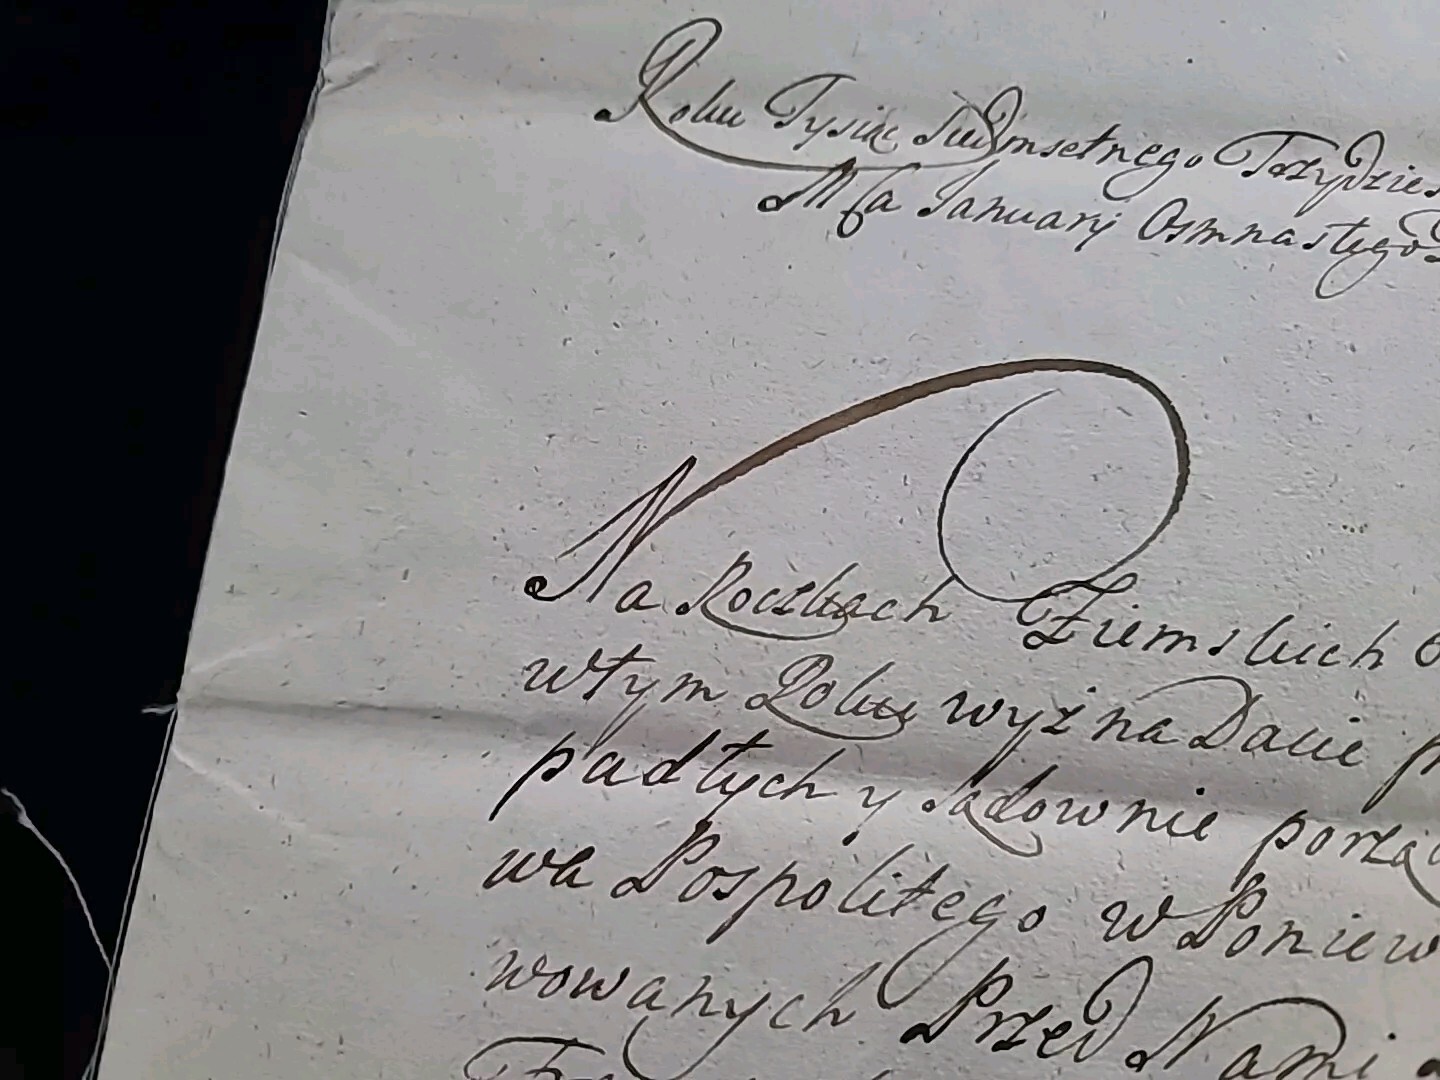 Roku Tysiąc Siedmsetnego Trzydzies
Mca Januarij Osmnastego D
Na Roczkach Ziemskich
wtym Roku wyż na Dacie
padłych y sądownie porzą
wa Pospolitego w Poniew
wowanych Przed Nami